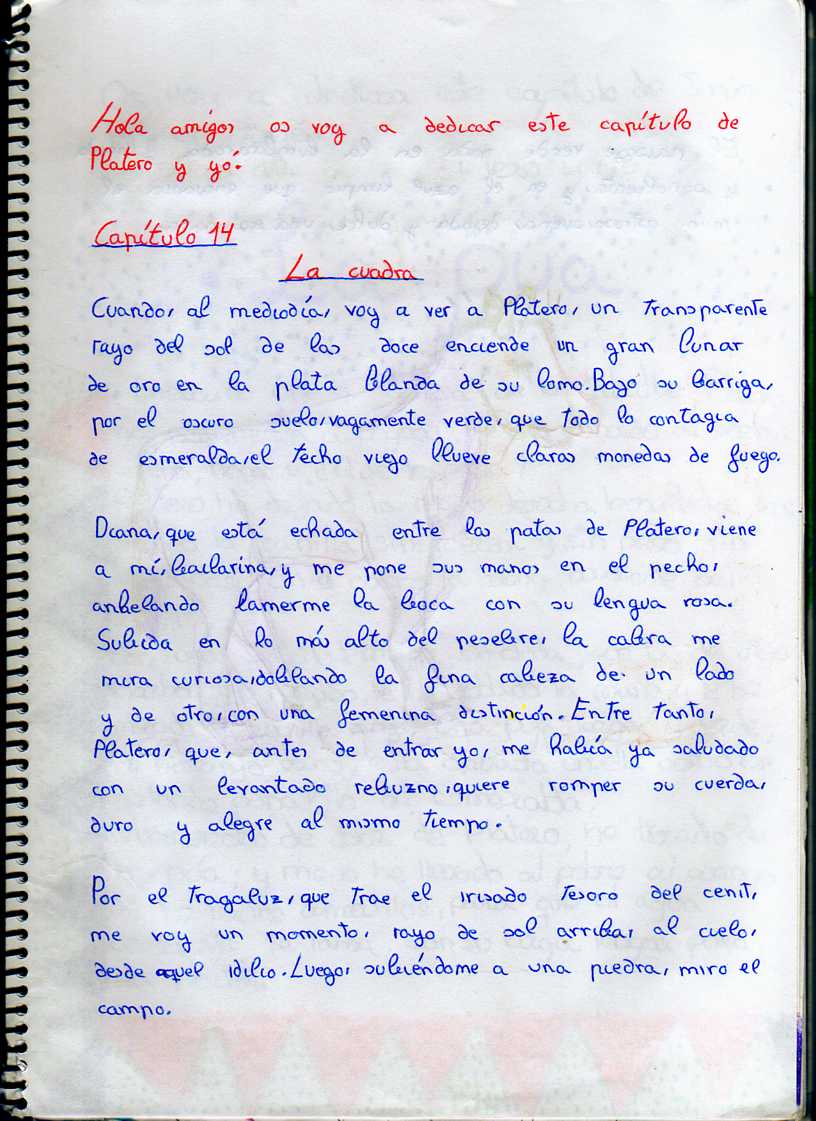 Hola amigos os voy a dedicar este capítulo de
Platero y yó.
Capítulo 14
La cuadra
Cuando, al mediodía, voy a ver a Platero, un transparente
rayo del sol de las doce enciende un gran lunar
de oro en la plata blanda de su lomo. Bajo su barriga,
por el oscuro suelo, vagamente verde, que todo lo contagia
de esmeralda, el techo viejo llueve claras monedas de fuego.
Diana, que está echada entre las patas de Platero, viene
a mí, bailarina, y me pone sus manos en el pecho,
anhelando lamerme la boca con su lengua rosa.
Subida en lo más alto del pesebre, la cabra me
mira curiosa, doblando la fina cabeza de un lado
y de otro, con una femenina distinción. Entre tanto,
Platero, que, antes de entrar yo, me había ya saludado
con un levantado rebuzno, quiere romper su cuerda,
duro y alegre al mismo tiempo.
Por el tragaluz, que trae el irisado tesoro del cenit,
me voy un momento, rayo de sol arriba, al cielo,
desde aquel idilio. Luego, subiéndome a una piedra, miro el
campo.